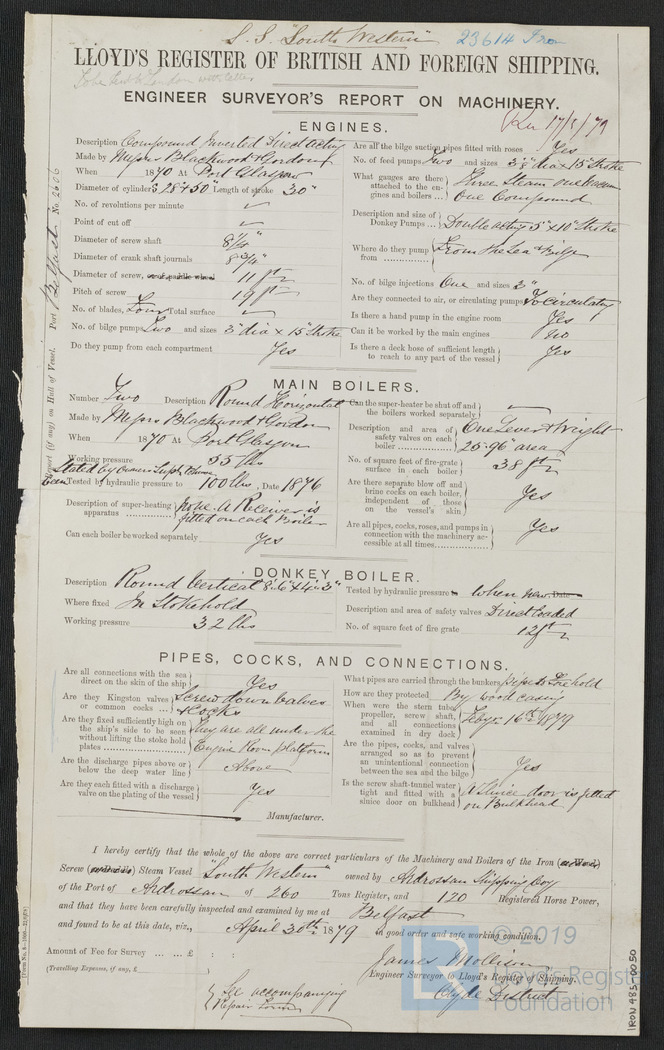 S. S. "South Western" 23614 Iron
LLOYD'S REGISTER OF BRITISH AND FOREIGN SHIPPING.
ENGINEER SURVEYOR'S REPORT ON MACHINERY.
17/5/79
Port Belfast No. 2606
Report (if any) on Hull of Vessel.
ENGINES.
Description Compound Inverted Direct acting
Made by Messrs Blackwood & Gordon
When 1870 At Port Glasgow
Diameter of cylinders 28" & 50" Length of stroke 30"
No. of revolutions per minute ✓
Point of cut off ✓
Diameter of screw shaft 8 1/4"
Diameter of crank shaft journals 8 3/4"
Diameter of screw, or of paddle wheel 11 ft
Pitch of screw 19 ft
No. of blades, Four Total surface ✓
No. of bilge pumps Two and sizes 3" dia x 15" Stroke
Do they pump from each compartment Yes
Are all the bilge suction pipes fitted with roses Yes
No. of feed pumps Two and sizes 3 1/8" dia x 15" Stroke
What gauges are there attached to the engines and boilers ... Three Steam one Vacuum One Compound
Description and size of Donkey Pumps ... Double acting 5" x 10" Stroke
Where do they pump from From the Sea & Bilge
No. of bilge injections One and sizes 3"
Are they connected to air, or circulating pumps To circulating
Is there a hand pump in the engine room Yes
Can it be worked by the main engines No
Is there a deck hose of sufficient length to reach to any part of the vessel Yes
MAIN BOILERS.
Number Two Description Round Horizontal
Made by Messrs Blackwood & Gordon
When 1870 At Port Glasgow
Working pressure 55 lbs
Stated by Owners Supt
Been Tested by hydraulic pressure to 100 lbs, Date 1876
Description of super-heating apparatus none. A Receiver is fitted on each Boiler
Can each boiler be worked separately Yes
Can the super-heater be shut off and the boilers worked separately ✓
Description and area of safety valves on each boiler One Lever & Weight 25.96" area
No. of square feet of fire-grate surface in each boiler 38 ft
Are there separate blow off and brine cocks on each boiler, independent of those on the vessel's skin Yes
Are all pipes, cocks, roses, and pumps in connection with the machinery accessible at all times Yes
DONKEY BOILER.
Description Round Vertical 8'.6" x 4'.3"
Where fixed In Stokehold
Working pressure 32 lbs
Tested by hydraulic pressure to When new. Date
Description and area of safety valves Direct loaded
No. of square feet of fire grate 12 ft
PIPES, COCKS, AND CONNECTIONS.
Are all connections with the sea direct on the skin of the ship Yes
Are they Kingston valves or common cocks ... Screw down Valves & Cocks
Are they fixed sufficiently high on the ship's side to be seen without lifting the stoke hold plates They are all under the Engine Room platform
Are the discharge pipes above or below the deep water line Above
Are they each fitted with a discharge valve on the plating of the vessel Yes
What pipes are carried through the bunkers pipes to Forehold
How are they protected By wood casing
When were the stern tube, propeller, screw shaft, and all connections examined in dry dock Feby 16th 1879
Are the pipes, cocks, and valves arranged so as to prevent an unintentional connection between the sea and the bilge Yes
Is the screw shaft-tunnel water tight and fitted with a sluice door on bulkhead A Sluice door is fitted on Bulkhead
Manufacturer.
I hereby certify that the whole of the above are correct particulars of the Machinery and Boilers of the Iron (or Wood)
Screw (or Paddle) Steam Vessel "South Western" owned by Ardrossan Shipping Coy
of the Port of Ardrossan of 260 Tons Register, and 120 Registered Horse Power,
and that they have been carefully inspected and examined by me at Belfast
and found to be at this date, viz., April 30th 1879 in good order and safe working condition.
Amount of Fee for Survey ... ... £ : :
(Travelling Expenses, if any, £
James Mollison
Engineer Surveyor to Lloyd's Register of Shipping.
Clyde District
See accompanying
Repair
© 2019
Lloyd's Register
Foundation
IRON 483-0050